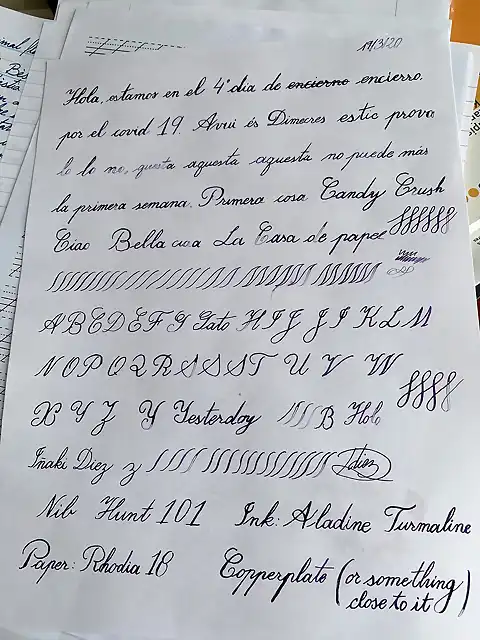 17/3/20
Hola, estamos en el 4º día de encierno encierro.
por el covid 19. Avui és Dimecres estic prova
lo lo no, questa aquesta aquesta no puede más
la primera semana. Primera cosa Candy Crush
Ciao Bella ciao a La Casa de papel
A B C D E F G Gato H I J J I K L M
N O P O Q R S S S T U V W
X Y Z Y Yesterday B Hola
Iñaki Díez z Idiez
Nib Hunt 101 Ink: Aladine Turmaline
Paper: Rhodia 18 Copperplate (or something
close to it)